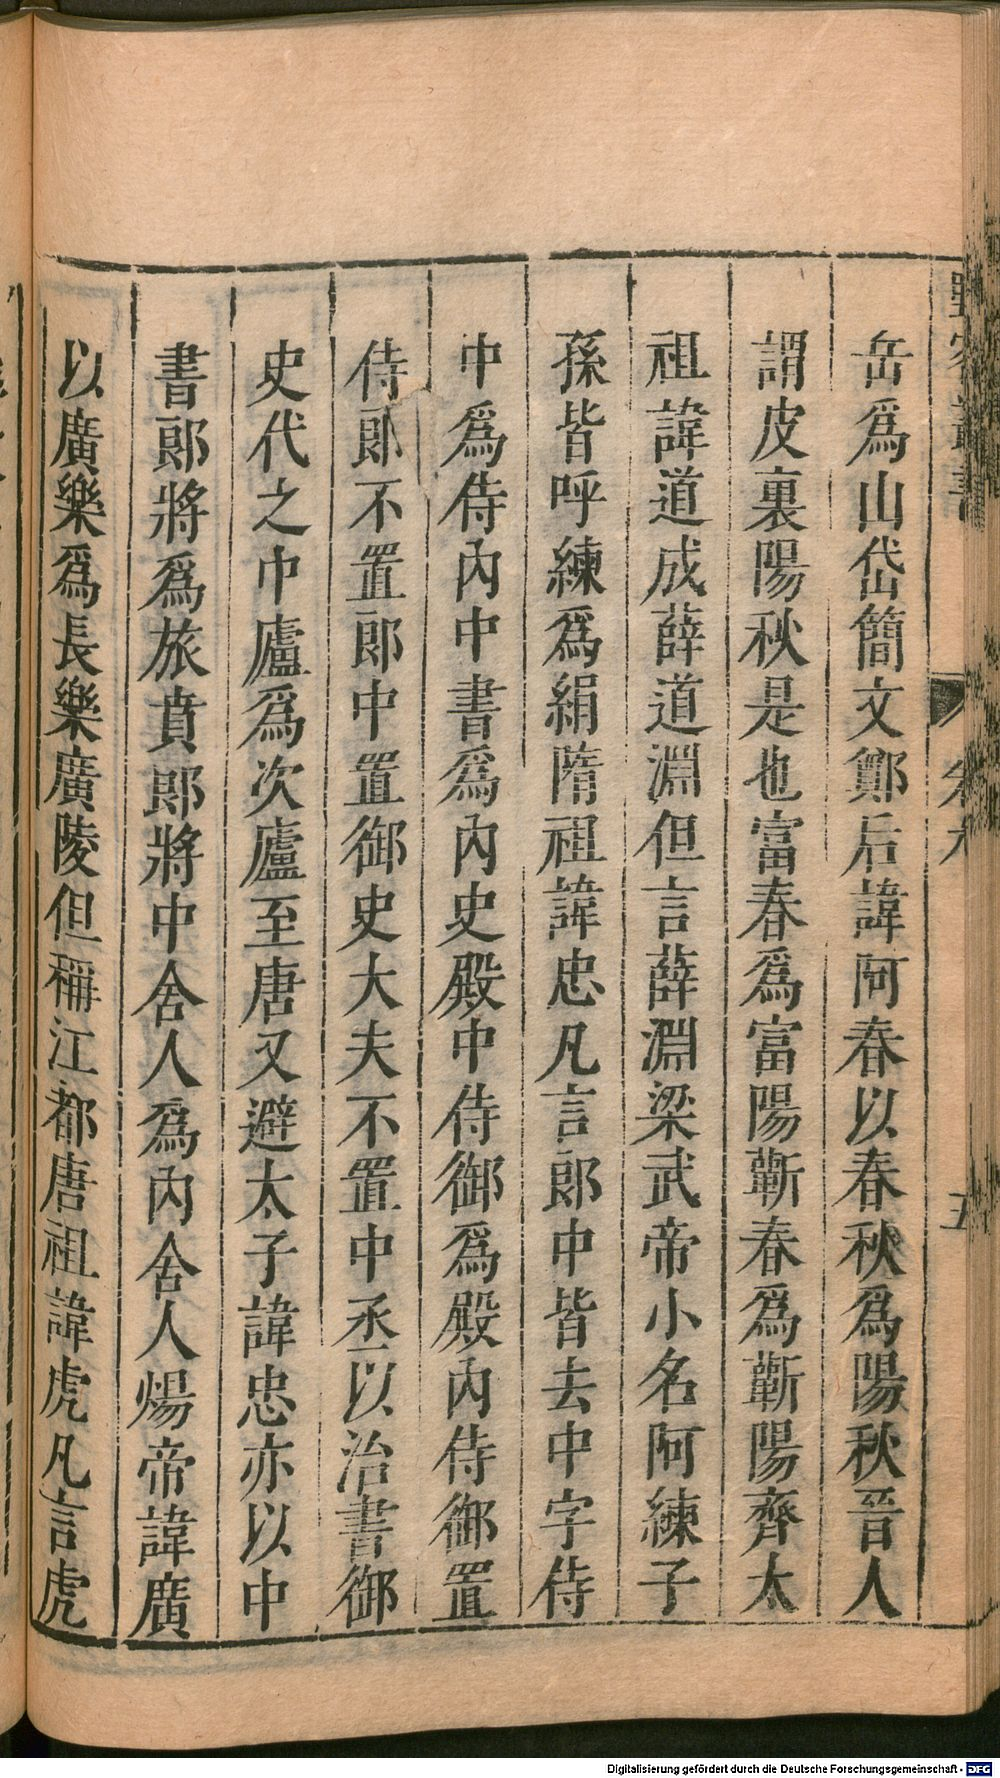 岳爲山岱簡文鄭后諱阿春以春秋爲陽秋晉人
謂皮裏陽秋是也富春爲富陽蘄春爲蘄陽齊太
祖諱道成薛道淵但言薛淵梁武帝小名阿練子
孫皆呼練爲絹隋祖諱忠凡言郎中皆去中字侍
中爲侍內中書爲內史殿中侍御爲殿內侍御置
侍郎不置郎中置御史大夫不置中丞以治書御
史代之中廬爲次廬至唐又避太子諱忠亦以中
書郎將爲旅賁郎將中舍人爲內舍人煬帝諱廣
以廣樂爲長樂廣陵但稱江都唐祖諱虎凡言虎
Digitalisierung gefördert durch die Deutsche Forschungsgemeinschaft - DFG